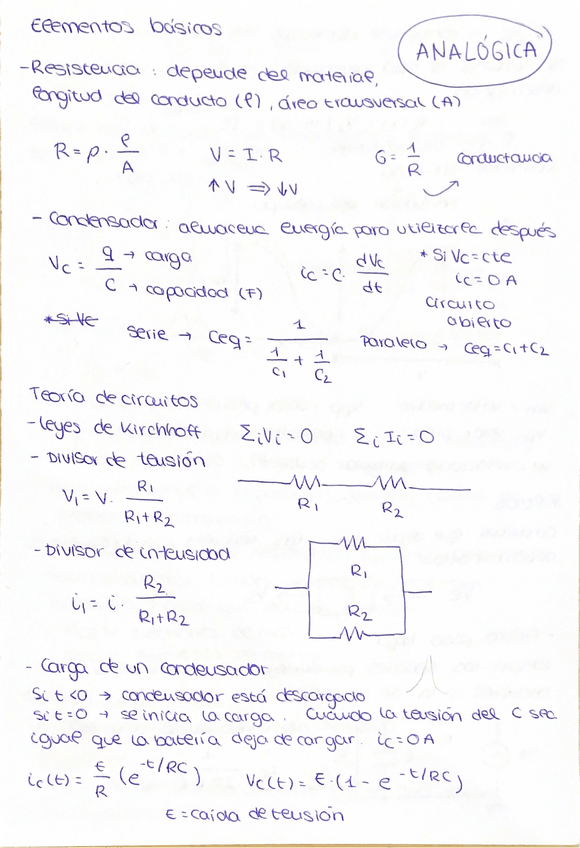 Elementos básicos
ANALÓGICA
- Resistencia : depende del material,
longitud del conducto (l), área transversal (A)
R = ρ · l/A    V = I · R    G = 1/R conductancia
↑V ⇒ ↓V
- Condensador : almacena energía para utilizarla después
Vc = q/C → carga → capacidad (F)    ic = C · dVc/dt    * Si Vc = cte
ic = 0 A
circuito
abierto
* Si Vc
serie → Ceq = 1/(1/C1 + 1/C2)    Paralelo → Ceq = C1 + C2
Teoría de circuitos
- leyes de Kirchhoff    Σi Vi = 0    Σi Ii = 0
- Divisor de tensión
V1 = V · R1/(R1 + R2)
R1    R2
- Divisor de intensidad
i1 = i · R2/(R1 + R2)
R1
R2
- Carga de un condensador
Si t < 0 → condensador está descargado
si t = 0 → se inicia la carga. Cuando la tensión del C sea
igual que la batería deja de cargar. ic = 0 A
ic(t) = E/R (e^-t/RC)    Vc(t) = E · (1 - e^-t/RC)
E = caída de tensión